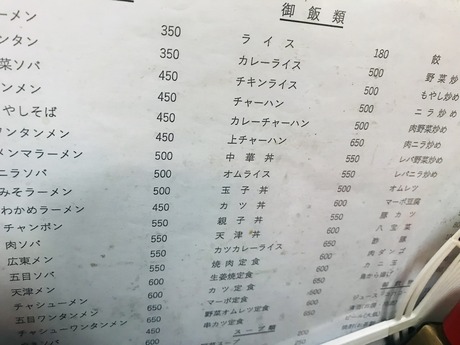 ーメン 350
ンタン 350
菜ソバ 450
ンメン 450
やしそば 450
ワンタンメン 450
メンマラーメン 500
ニラソバ 500
みそラーメン 500
わかめラーメン 450
チャンポン 550
肉ソバ 550
広東メン 550
五目ソバ 550
天津メン 600
チャシューメン 600
五目ワンタンメン 600
チャシューワンタンメン
御飯類
ライス 180
カレーライス 500
チキンライス 500
チャーハン 500
カレーチャーハン 500
上チャーハン 650
中華丼 550
オムライス 550
玉子丼 500
カツ丼 600
親子丼 550
天津丼 600
カツカレーライス 600
焼肉定食 600
生姜焼定食 600
カツ定食 600
マーボ定食 500
野菜オムレツ定食 600
串カツ定食 600
スープ類
餃
野菜炒め
もやし炒め
ニラ炒め
肉野菜炒め
肉ニラ炒め
レバ野菜炒め
レバニラ炒め
オムレツ
マーボ豆腐
豚カツ
八宝菜
酢豚
肉ダンゴ
カニ玉